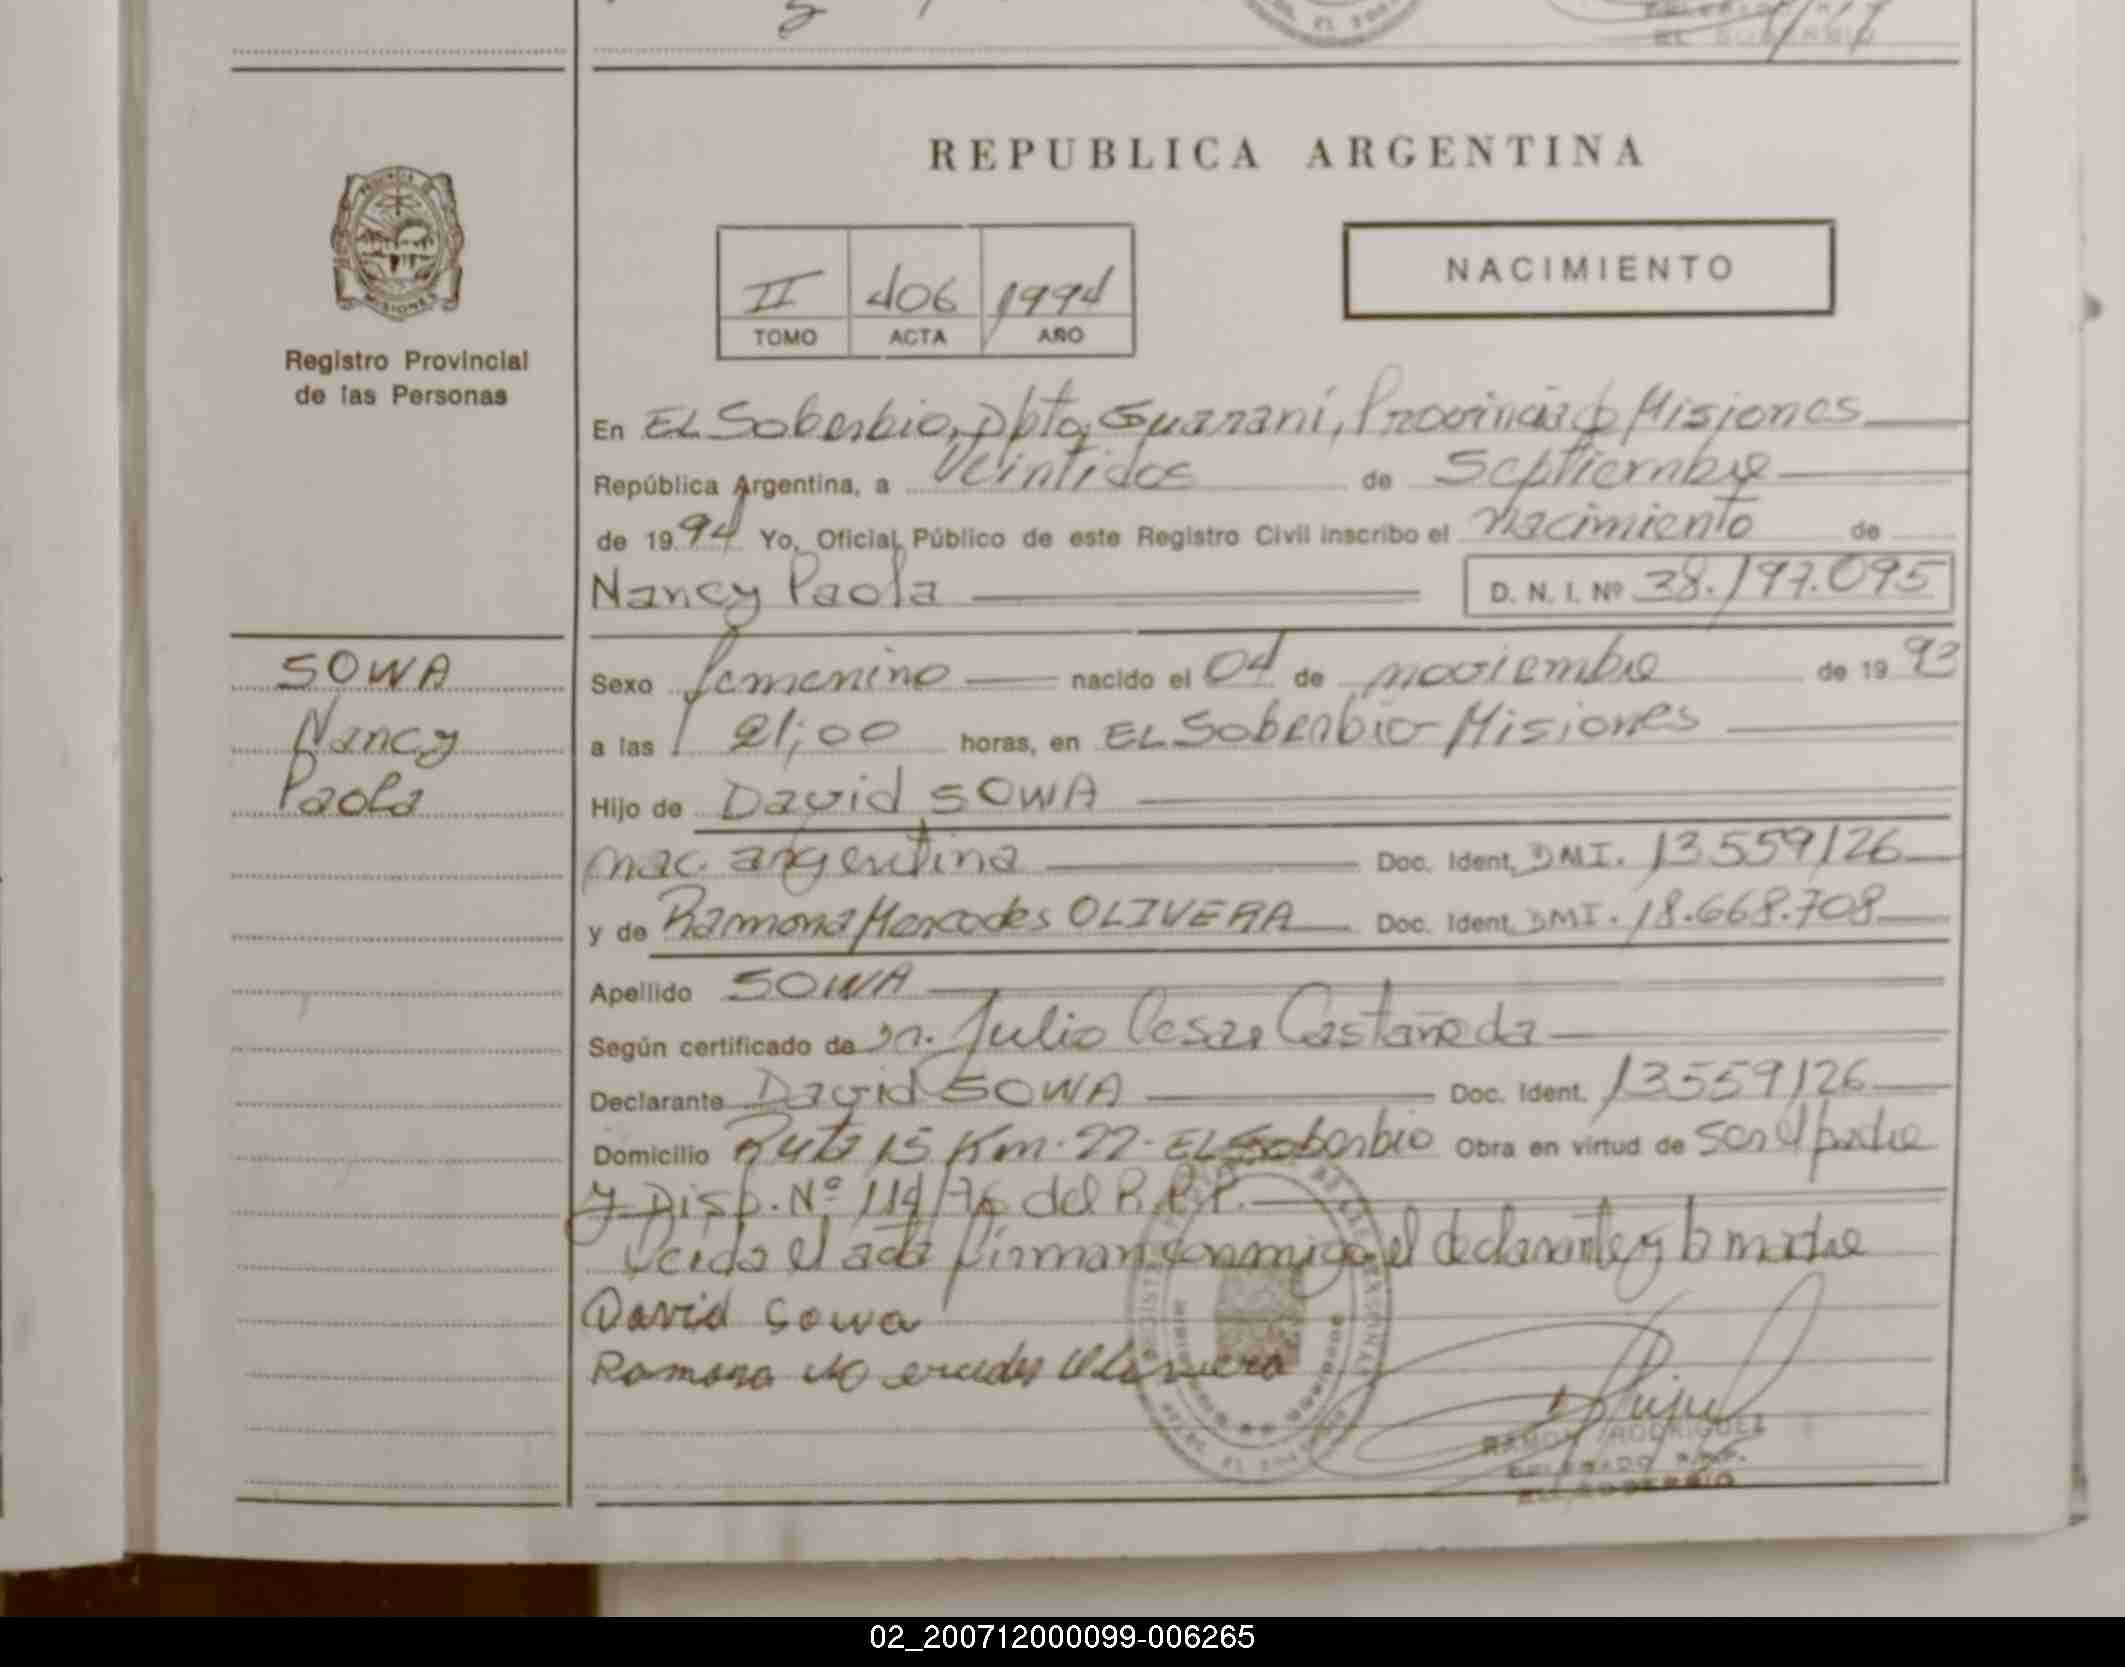 REPUBLICA ARGENTINA
PROVINCIA DE MISIONES
Registro Provincial
de las Personas
II 406 1994
TOMO ACTA AÑO
NACIMIENTO
En EL Soberbio, Dpto, Guaraní, Provincia de Misiones
República Argentina, a Veintidos de Septiembre
de 1994 Yo, Oficial Público de este Registro Civil inscribo el nacimiento de
Nancy Paola D. N. I. Nº 38.197.095
SOWA
Nancy
Paola
Sexo femenino nacido el 04 de noviembre de 1993
a las 21;00 horas, en EL Soberbio-Misiones
Hijo de David SOWA
nac. argentina Doc. Ident. DMI. 13559126
y de Ramona Mercedes OLIVERA Doc. Ident. DMI. 18.668.708
Apellido SOWA
Según certificado de Dr. Julio Cesar Castañeda
Declarante David SOWA Doc. Ident. 13559126
Domicilio Ruta 15 Km. 22- EL Soberbio Obra en virtud de ser el padre
y Disp. Nº 114/76 del R.P.P.
Leida el acta firman conmigo el declarante y la madre
David Sowa
Ramona Mercedes Olivera
RAMON RODRIGUEZ
DELEGADO R.P.P.
EL SOBERBIO
02_200712000099-006265